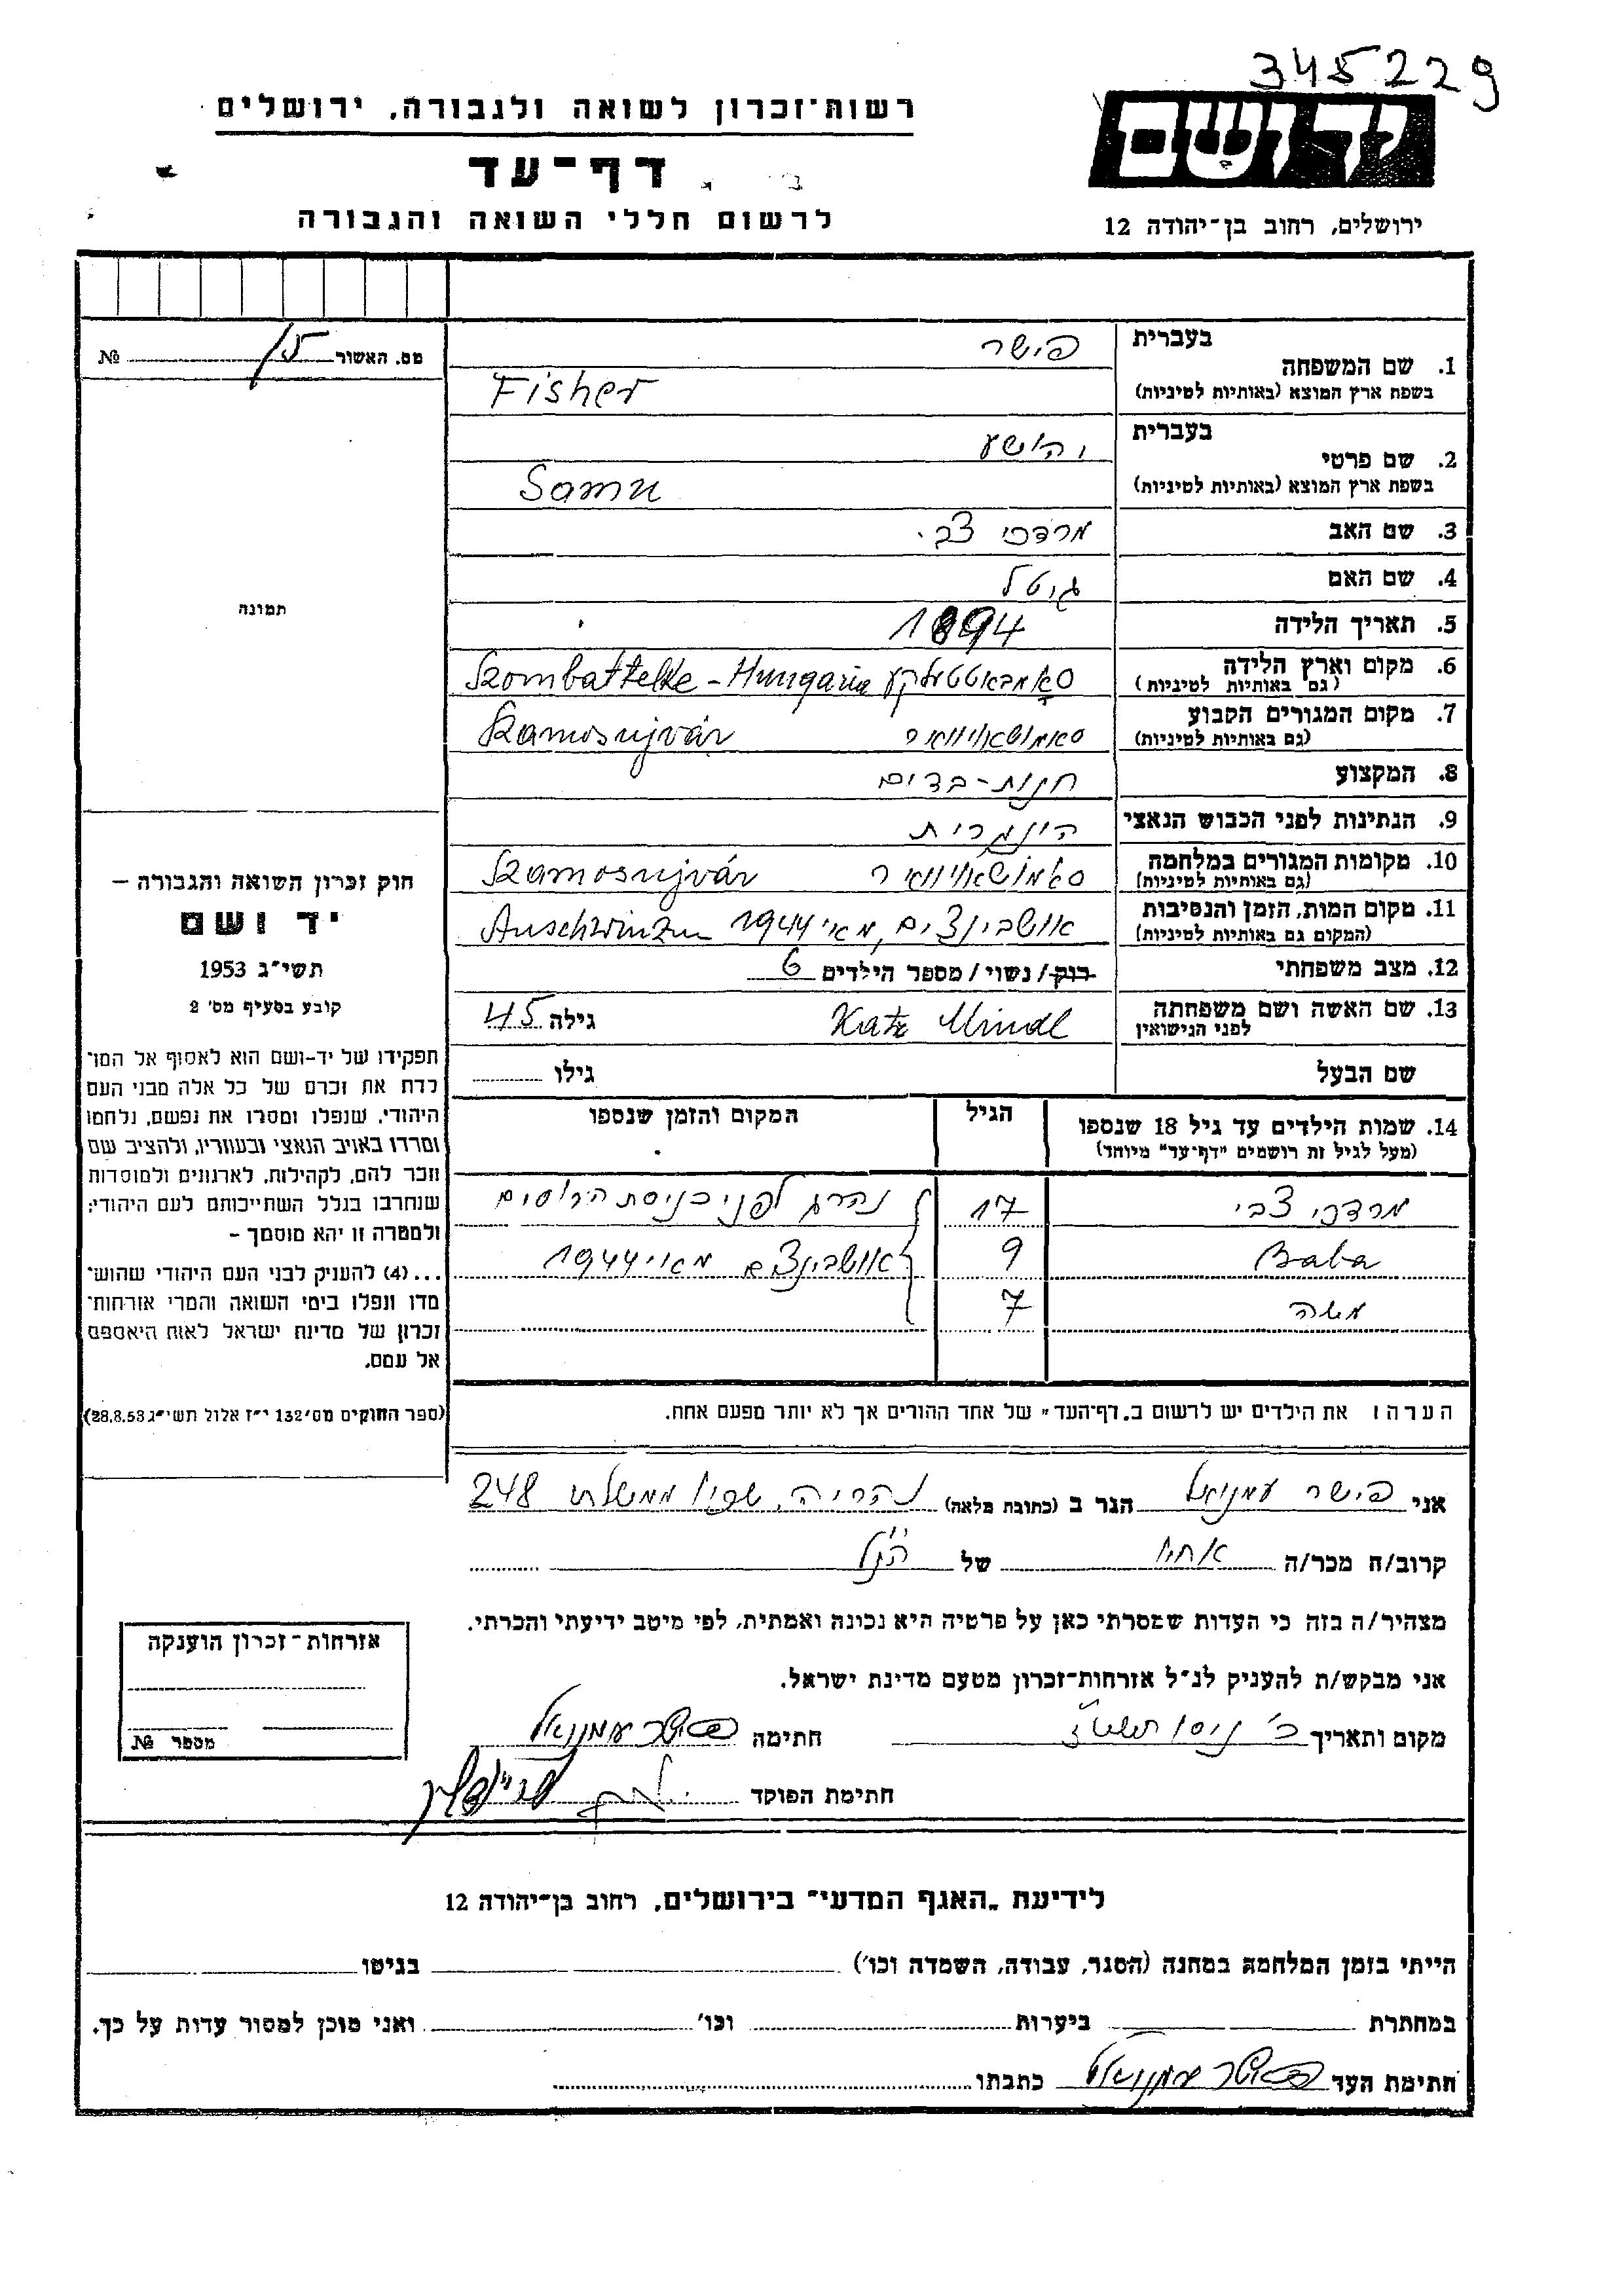 345229
יד ושם
רשות-זכרון לשואה ולגבורה, ירושלים
דף-עד
לרשום חללי השואה והגבורה
ירושלים, רחוב בן-יהודה 12
מס. האשור 15 №
תמונה
חוק זכרון השואה והגבורה –
יד ושם
תשי"ג 1953
קובע בסעיף מס' 2
תפקידו של יד-ושם הוא לאסוף אל המו־
לדת את זכרם של כל אלה מבני העם
היהודי, שנפלו ומסרו את נפשם, נלחמו
ומרדו באויב הנאצי ובעוזריו, ולהציב שם
וזכר להם, לקהילות, לארגונים ולמוסדות
שנחרבו בגלל השתייכותם לעם היהודי;
ולמטרה זו יהא מוסמך –
...(4) להעניק לבני העם היהודי שהוש־
מדו ונפלו בימי השואה והמרי אזרחות־
זכרון של מדינת ישראל לאות היאספם
אל עמם.
(ספר החוקים מס' 132 י"ז אלול תשי"ג 28.8.53)
1. שם המשפחה בעברית פישר
בשפת ארץ המוצא (באותיות לטיניות) Fisher
2. שם פרטי בעברית יהושע
בשפת ארץ המוצא (באותיות לטיניות) Samu
3. שם האב מרדכי צבי
4. שם האם גיטל
5. תאריך הלידה 1894
6. מקום וארץ הלידה (גם באותיות לטיניות) סאמבאטטעלקע Szombattelke - Hungaria
7. מקום המגורים הקבוע (גם באותיות לטיניות) סאמושאויוואר Szamosujvár
8. המקצוע חנות-בדים
9. הנתינות לפני הכבוש הנאצי הונגרית
10. מקומות המגורים במלחמה (גם באותיות לטיניות) סאמושאויוואר Szamosujvár
11. מקום המות, הזמן והנסיבות (המקום גם באותיות לטיניות) אושבינצים, מאי 1944
12. מצב משפחתי רוק/נשוי/מספר הילדים 6
13. שם האשה ושם משפחתה לפני הנישואין Katz Mindl גילה 45
שם הבעל גילו
14. שמות הילדים עד גיל 18 שנספו הגיל המקום והזמן שנספו
(מעל לגיל זה רושמים "דף-עד" מיוחד)
מרדכי צבי 17 נהרג לפני כניסת הרוסים
Baba 9 אושבינצים מאי 1944
משה 7
הערה: את הילדים יש לרשום ב"דף-העד" של אחד ההורים אך לא יותר מפעם אחת.
אני פישר עמנואל הגר ב (כתובת מלאה) נהריה, שכון ממשלתי 248
קרוב/ה מכר/ה אחיו של הנ"ל
מצהיר/ה בזה כי העדות שמסרתי כאן על פרטיה היא נכונה ואמתית, לפי מיטב ידיעתי והכרתי.
אני מבקש/ת להעניק לנ"ל אזרחות-זכרון מטעם מדינת ישראל.
מקום ותאריך ניסן חתימה פישר עמנואל
חתימת הפוקד
אזרחות-זכרון הוענקה
מספר №
לידיעת "האגף המדעי" בירושלים, רחוב בן-יהודה 12
הייתי בזמן המלחמה במחנה (הסגר, עבודה, השמדה וכו') בגיטו
במחתרת ביערות וכו' ואני מוכן למסור עדות על כך.
חתימת העד פישר עמנואל כתבתו